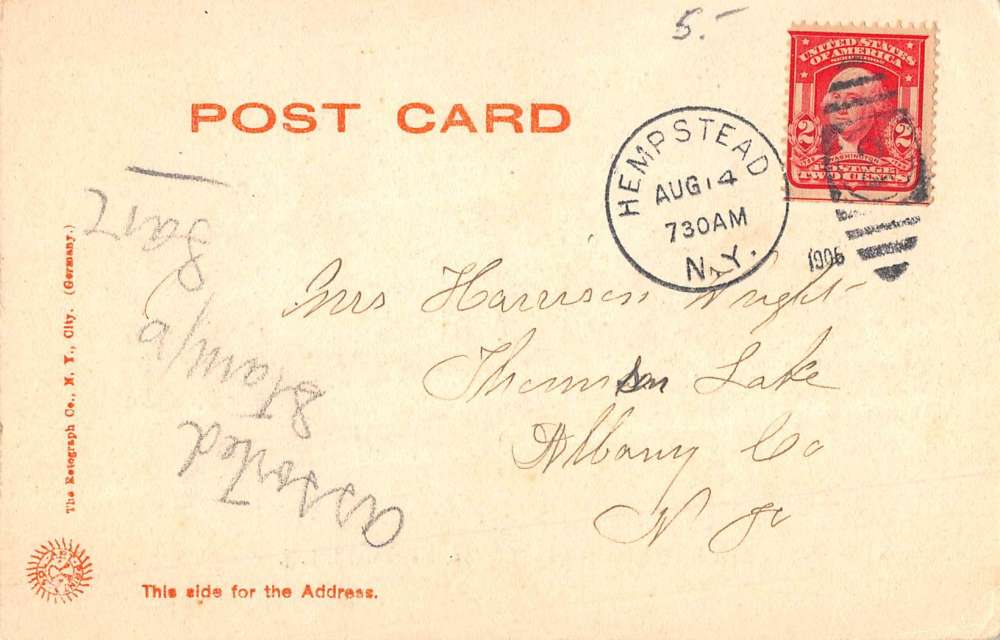 5.-
UNITED STATES
OF AMERICA
2 2
WASHINGTON
POST CARD
HEMPSTEAD
AUG 14
730 AM
N.Y.
1906
Mrs Harrison Wright
Thomson Lake
Albany Co
N Y
assorted
stamp
The Rotograph Co., N. Y., City. (Germany.)
This side for the Address.